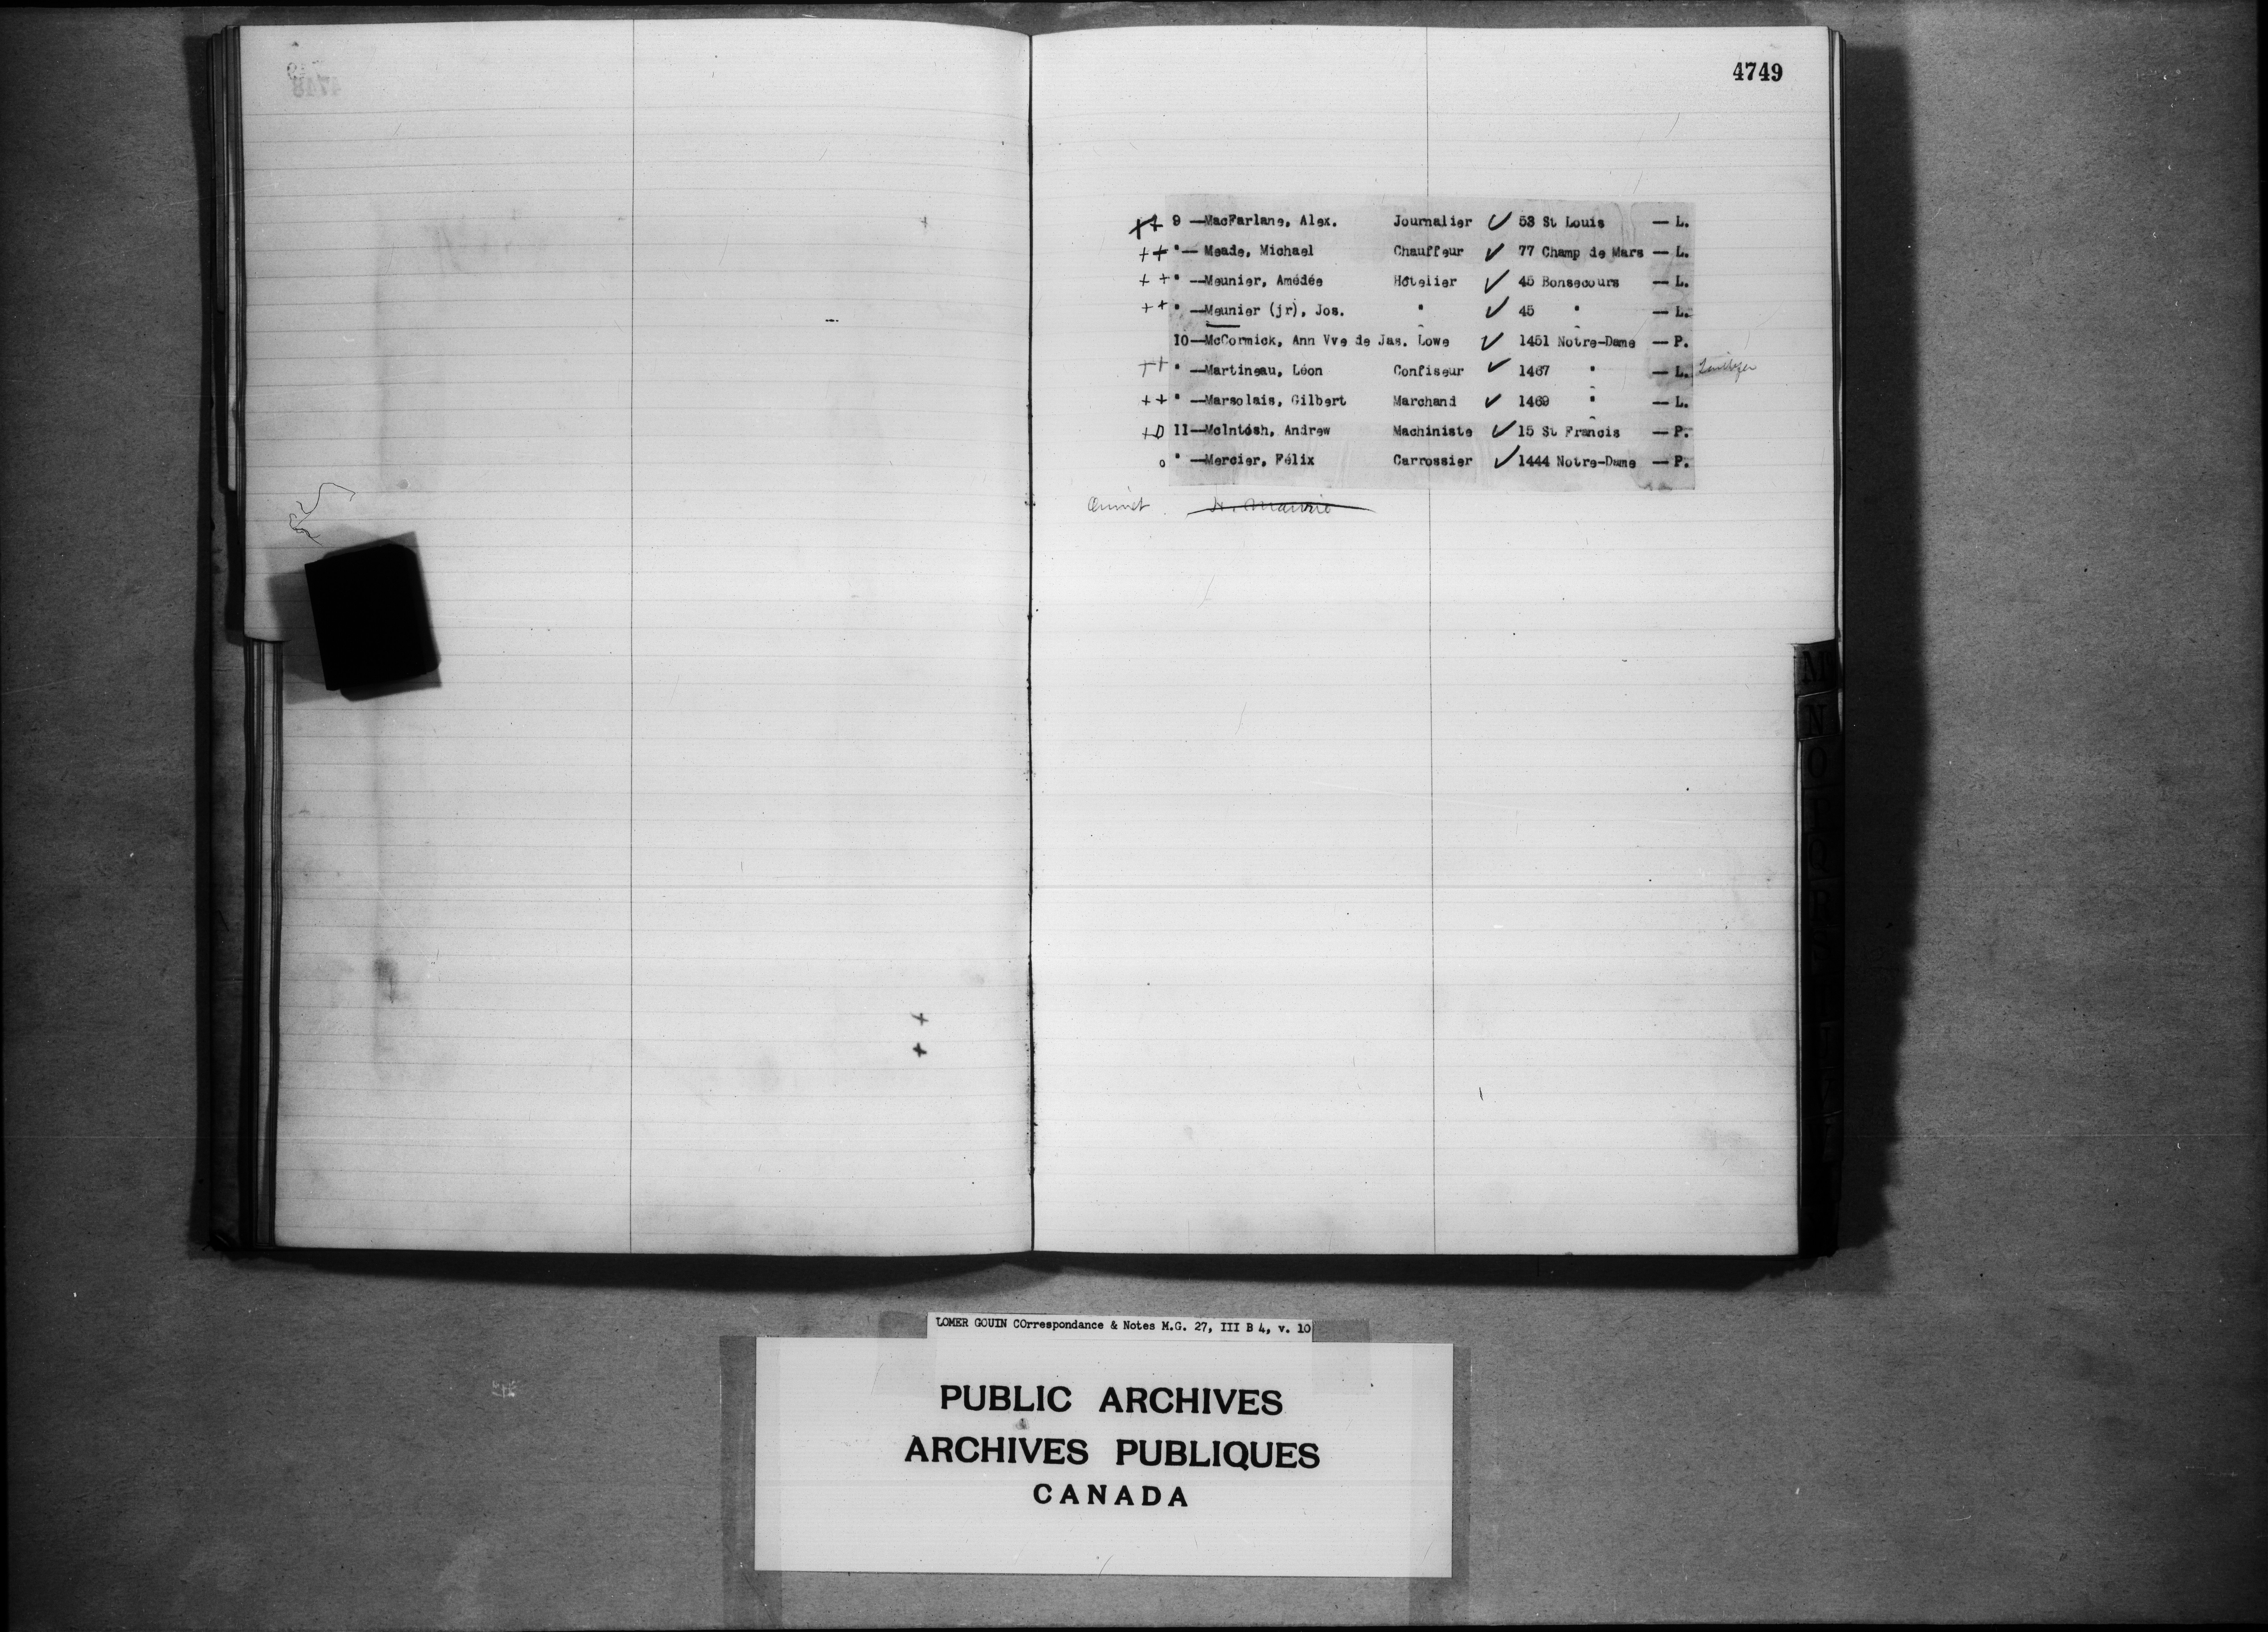 4749
++ 9 —MacFarlane, Alex. Journalier ✓ 53 St Louis — L.
++ " — Meade, Michael Chauffeur ✓ 77 Champ de Mars — L.
++ " —Meunier, Amédée Hôtelier ✓ 45 Bonsecours — L.
++ " —Meunier (jr), Jos. " ✓ 45 " — L.
10—McCormick, Ann Vve de Jas. Lowe ✓ 1451 Notre-Dame — P.
++ " —Martineau, Léon Confiseur ✓ 1467 " — L.
++ " —Marsolais, Gilbert Marchand ✓ 1469 " — L.
+0 11—McIntosh, Andrew Machiniste ✓ 15 St Francis — P.
o " —Mercier, Félix Carrossier ✓ 1444 Notre-Dame — P.
M
N
O
P
Q
R
LOMER GOUIN COrrespondance & Notes M.G. 27, III B 4, v. 10
PUBLIC ARCHIVES
ARCHIVES PUBLIQUES
CANADA